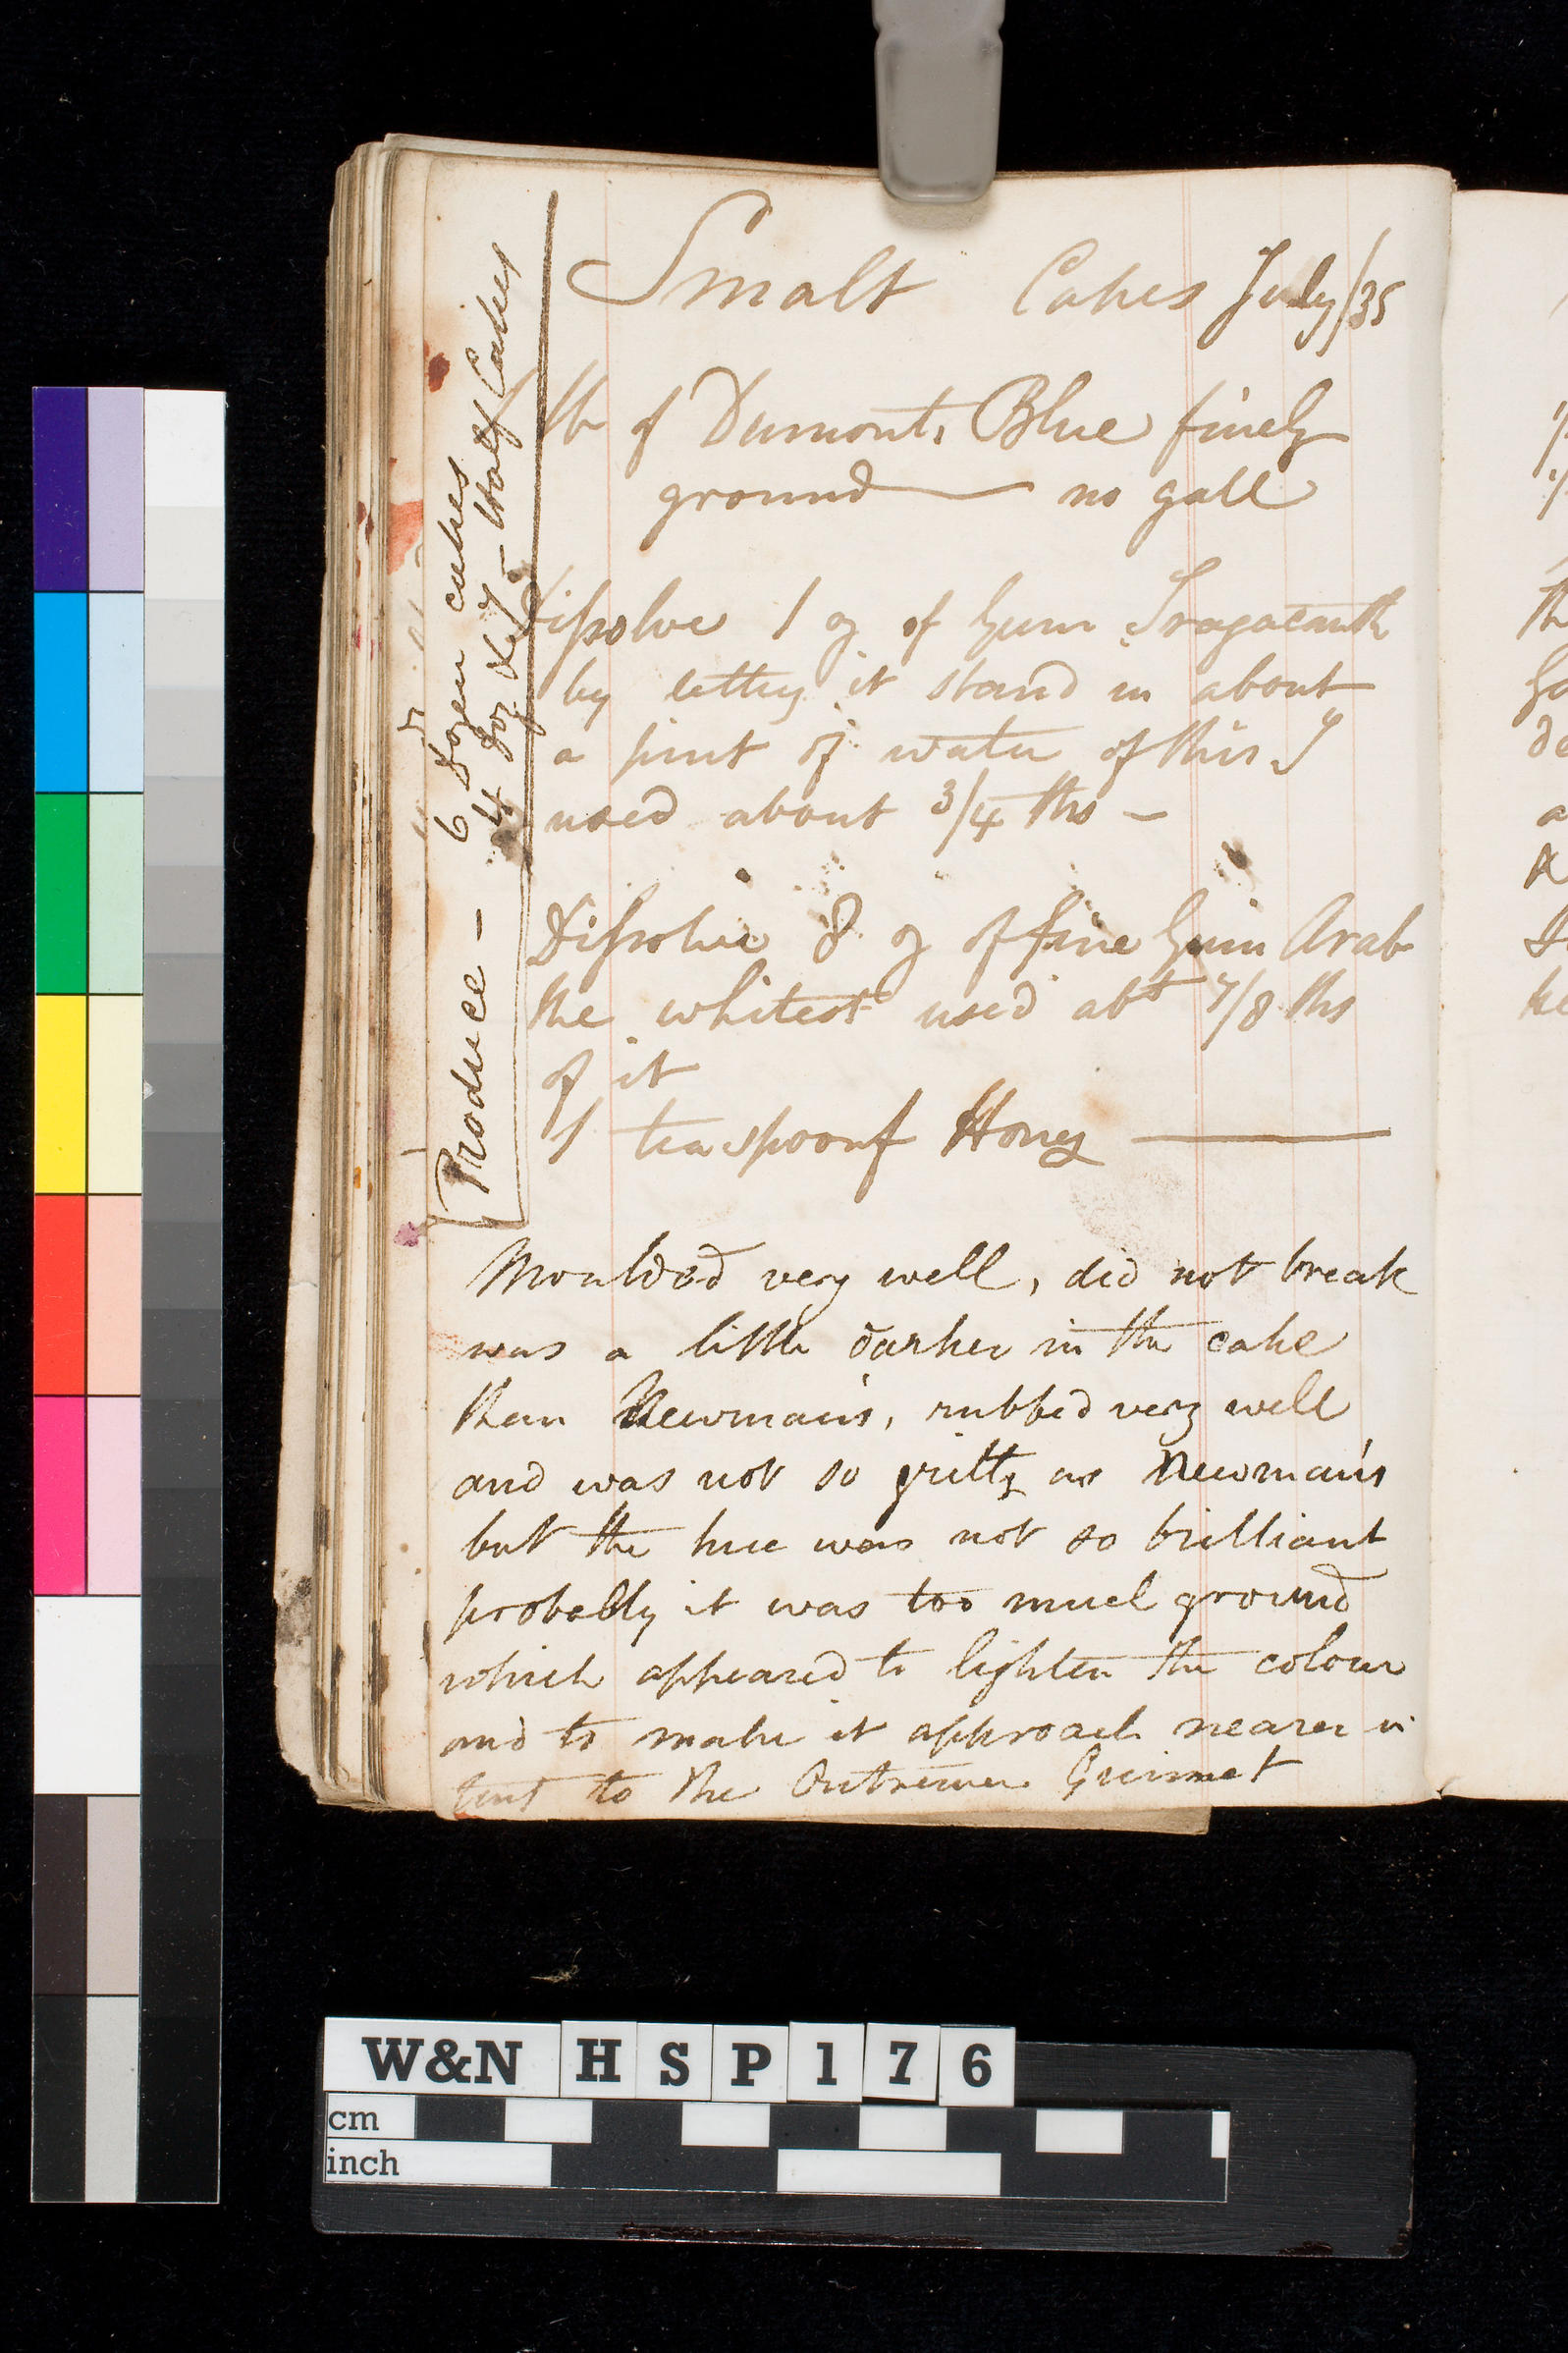 Smalt Cakes July/35
lb of Dumonts Blue finely
ground — no gall
Dissolve 1 oz of Gum Tragacanth
by letting it stand in about
a pint of water of this I
used about 3/4 ths —
Dissolve 8 oz of fine Gum Arab
the whitest used abt 7/8 ths
of it
1 teaspoonf Honey —
Moulded very well, did not break
was a little darker in the cake
than Newman's, rubbed very well
and was not so gritty as Newman's
but the hue was not so brilliant
probably it was too much ground
which appeared to lighten the colour
and to make it approach nearer in
tint to the Outremer Guimet
Produce — 6 Dozen cakes
4 Doz & 7 — Half Cakes
W&N HSP176
cm
inch